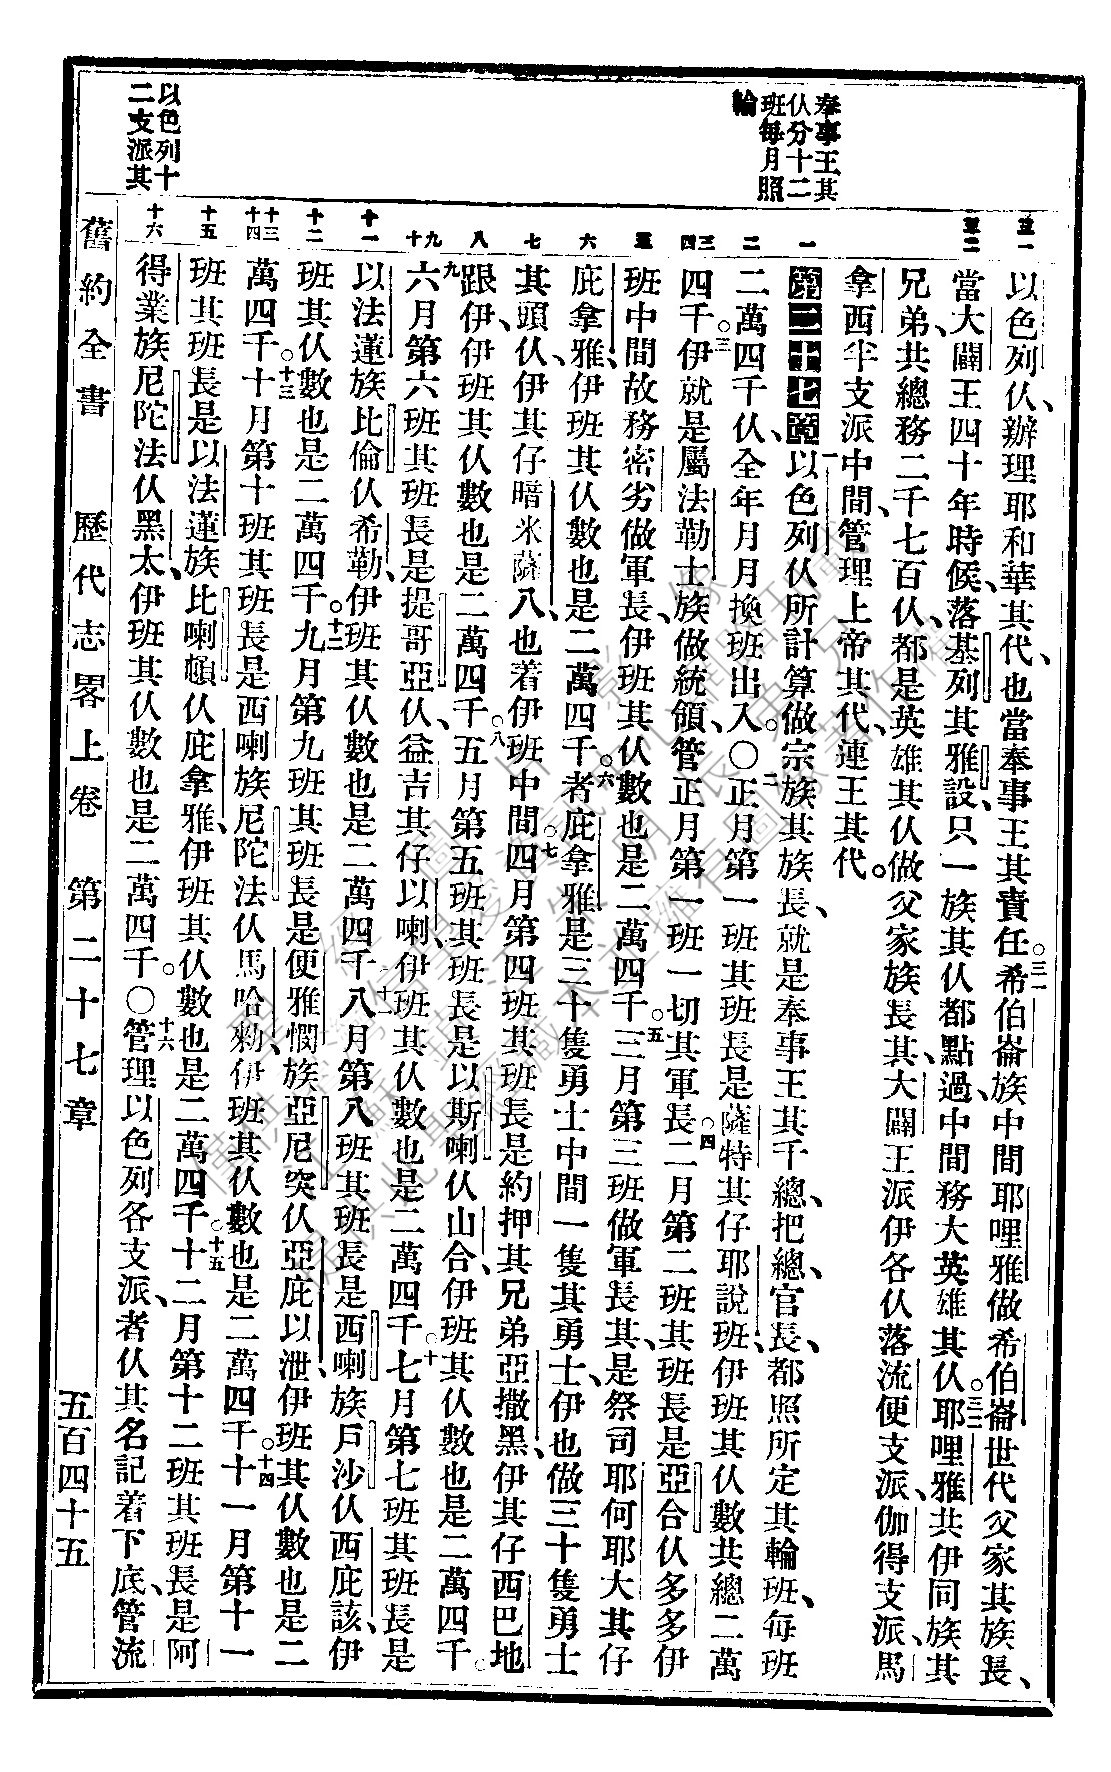 奉事王其
仏分十二
班每月照
輪
以色列十
二支派其
以色列仏、辦理耶和華其代、也當奉事王其責任。三一希伯崙族中間、耶哩雅做希伯崙世代父家其族長、
當大闢王四十年時候、落基列其雅設、只一族其仏都點過、中間務大英雄其仏。三二耶哩雅共伊同族其
兄弟、共總務二千七百仏、都是英雄其仏、做父家族長其、大闢王派伊各仏落流便支派、伽得支派、馬
拿西半支派中間、管理上帝其代、連王其代。
第二十七章 一以色列仏所計算做宗族其族長、就是奉事王其千總、把總、官長、都照所定其輪班、每班
二萬四千仏、全年月月換班出入。〇二正月第一班其班長是薩特其仔耶說班、伊班其仏數共總二萬
四千。三伊就是屬法勒士族、做統領、管正月第一班一切其軍長。四二月第二班其班長是亞合仏多多、伊
班中間故務密劣做軍長、伊班其仏數也是二萬四千。五三月第三班做軍長其、是祭司耶何耶大其仔
庇拿雅、伊班其仏數也是二萬四千。六者庇拿雅是三十隻勇士中間一隻其勇士、伊也做三十隻勇士
其頭、伊其仔暗米薩八也着伊班中間。七四月第四班其班長是約押其兄弟亞撒黑、伊其仔西巴地
跟伊、伊班其仏數也是二萬四千。八五月第五班其班長是以斯喇仏山合、伊班其仏數也是二萬四千。
九六月第六班其班長是提哥亞仏、益吉其仔以喇、伊班其仏數也是二萬四千。十七月第七班其班長是
以法蓮族比倫仏希勒、伊班其仏數也是二萬四千。十一八月第八班其班長是西喇族戶沙仏西庇該、伊
班其仏數也是二萬四千。十二九月第九班其班長是便雅憫族亞尼突仏亞庇以泄、伊班其仏數也是二
萬四千。十三十月第十班其班長是西喇族尼陀法仏馬哈勑、伊班其仏數也是二萬四千。十四十一月第十一
班其班長是以法蓮族比喇頓仏庇拿雅、伊班其仏數也是二萬四千。十五十二月第十二班其班長是阿
得業族尼陀法仏黑太、伊班其仏數也是二萬四千。〇十六管理以色列各支派、者仏其名記着下底、管流
舊約全書 歷代志畧上卷 第二十七章 五百四十五